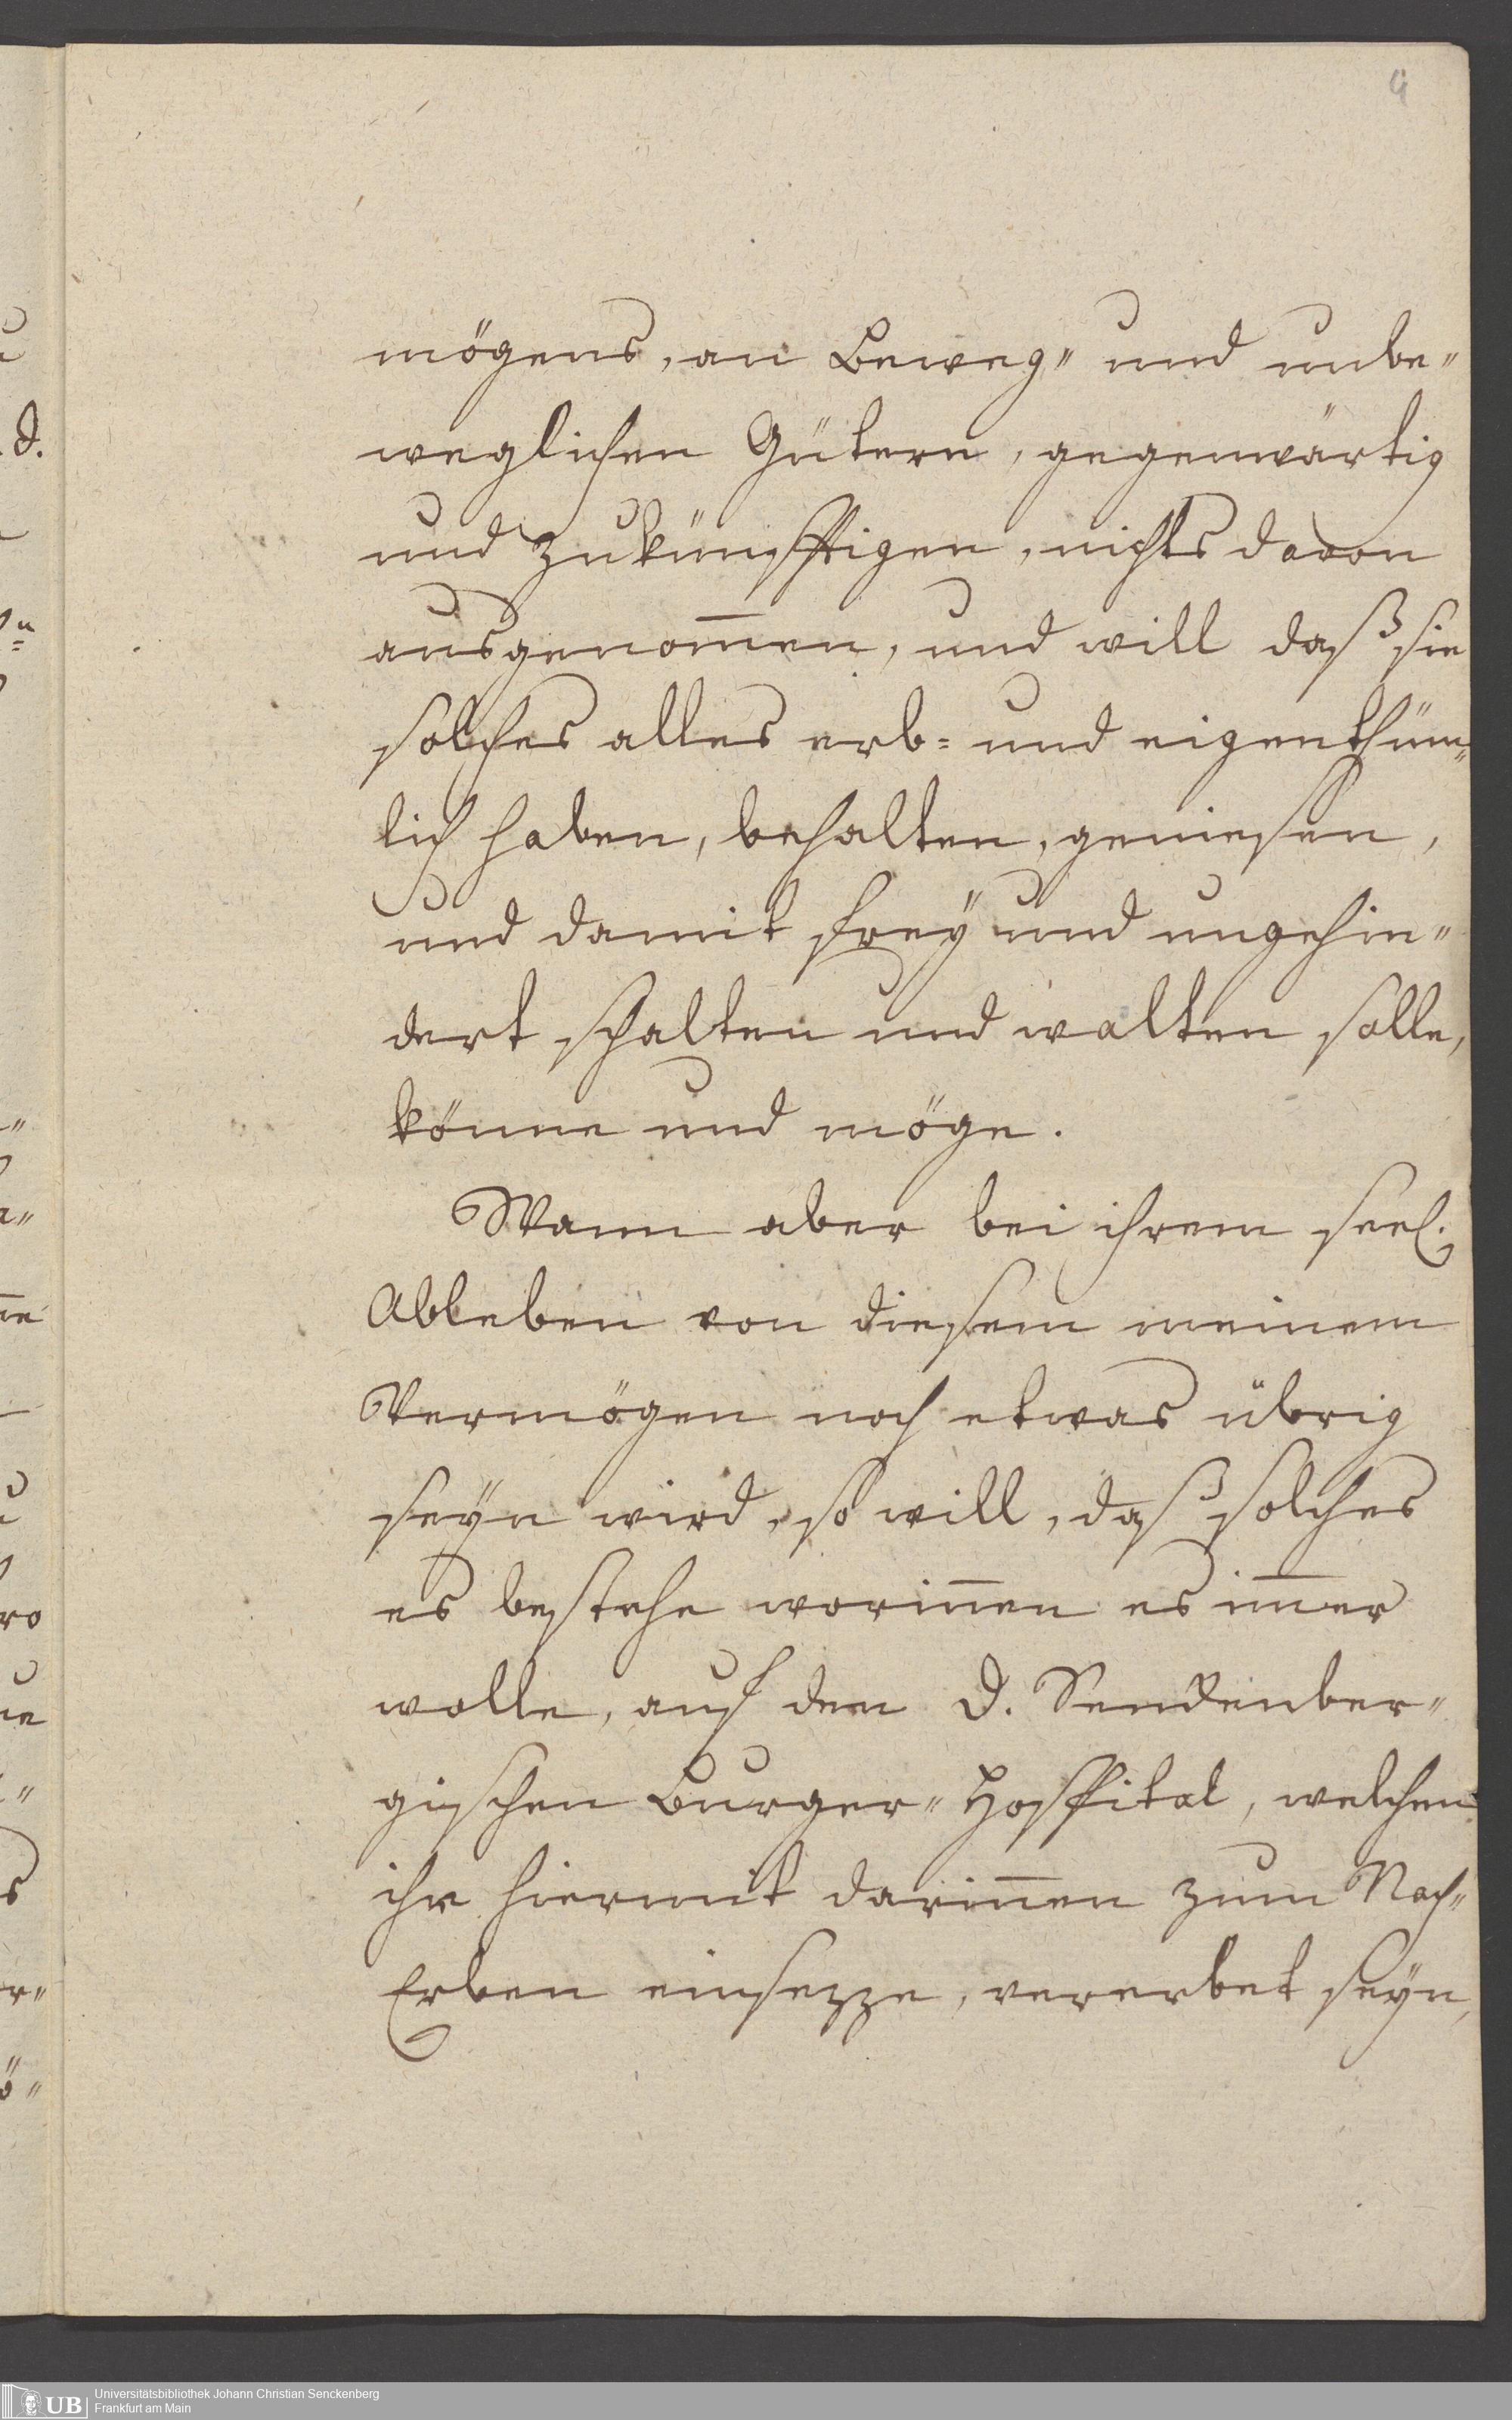 4
mögens, an Beweg" und unbe"
weglichen Gütern, gegenwärtig
und zukünfftigen, nichts davon
ausgenom̅en, und will daß sie
solches alles erb= und eigenthüm"
lich haben, behalten, geniesen,
und damit freÿ und ungehin"
dert schalten und walten solle,
könne und möge.
Wann aber bei ihrem seel.
Ableben von diesem meinem
Vermögen noch etwas übrig
seÿn wird, so will, daß solches
es bestehe worin̅en es im̅er
wolle, auf den D. Senckenber"
gischen Burger" Hospital, welchen
ihr hiermit darin̅en zum Nach"
Erben einsezze, vererbet seÿn,
UB
Universitätsbibliothek Johann Christian Senckenberg
Frankfurt am Main